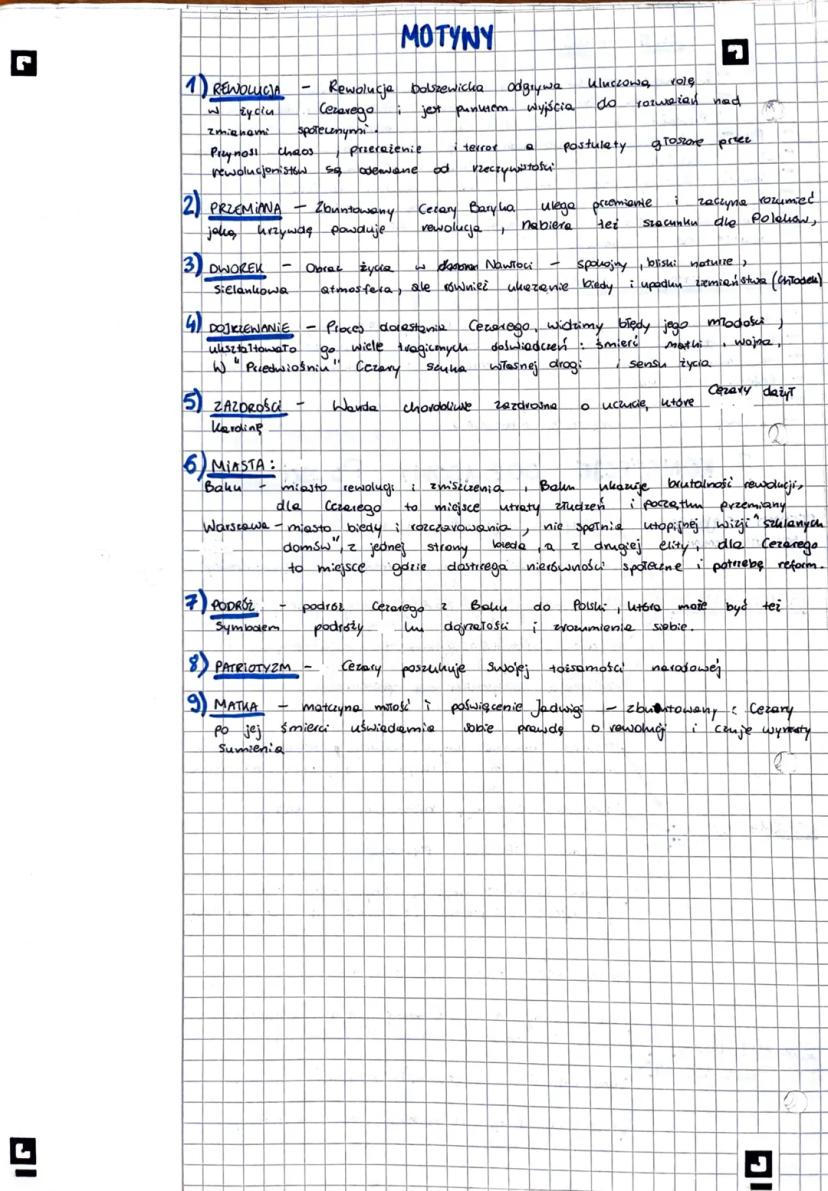 MOTYWY
1) REWOLUCJA - Rewolucja bolszewicka odgrywa kluczową rolę
w życiu Cezarego i jest punktem wyjścia do rozważań nad
zmianami społecznymi.
Przynosi chaos, przerażenie i terror a postulaty głoszone przez
rewolucjonistów są oderwane od rzeczywistości
2) PRZEMIANA - Zbuntowany Cezary Baryka ulega przemianie i zaczyna rozumieć
jaką krzywdę powduje rewolucja, nabiera też szacunku dla Polaków,
3) DWOREK - Obraz życia w Nawłoci - spokojny, bliski naturze,
sielankowa atmosfera, ale również ukazanie biedy i upadku ziemiaństwa (Chłodek)
4) DOJRZEWANIE - Proces dorastania Cezarego, widzimy błędy jego młodości,
ukształtowało go wiele tragicznych doświadczeń: śmierć matki, wojna.
W "Przedwiośniu" Cezary szuka własnej drogi i sensu życia
5) ZAZDROŚCI - Wanda chorobliwe zazdrosna o uczucie, które Cezary dażył
Karolinę
6) MIASTA:
Baku - miasto rewolucji i zniszczenia, Baku ukazuje brutalność rewolucji,
dla Cezarego to miejsce utraty złudzeń i początku przemiany
Warszawa - miasto biedy i rozczarowania, nie spełnia utopijnej wizji "szklanych
domów", z jednej strony bieda, a z drugiej elity, dla Cezarego
to miejsce gdzie dostrzega nierówności społeczne i potrzebę reform.
7) PODRÓŻ - podróż Cezarego z Baku do Polski, która może być też
symbolem podróży ku dojrzałości i zrozumienia siebie.
8) PATRIOTYZM - Cezary poszukuje swojej tożsamości narodowej
9) MATKA - matczyna miłość i poświęcenie Jadwigi - zbuntowany Cezary
po jej śmierci uświadamia sobie prawdę o rewolucji i czuje wyrzuty
sumienia